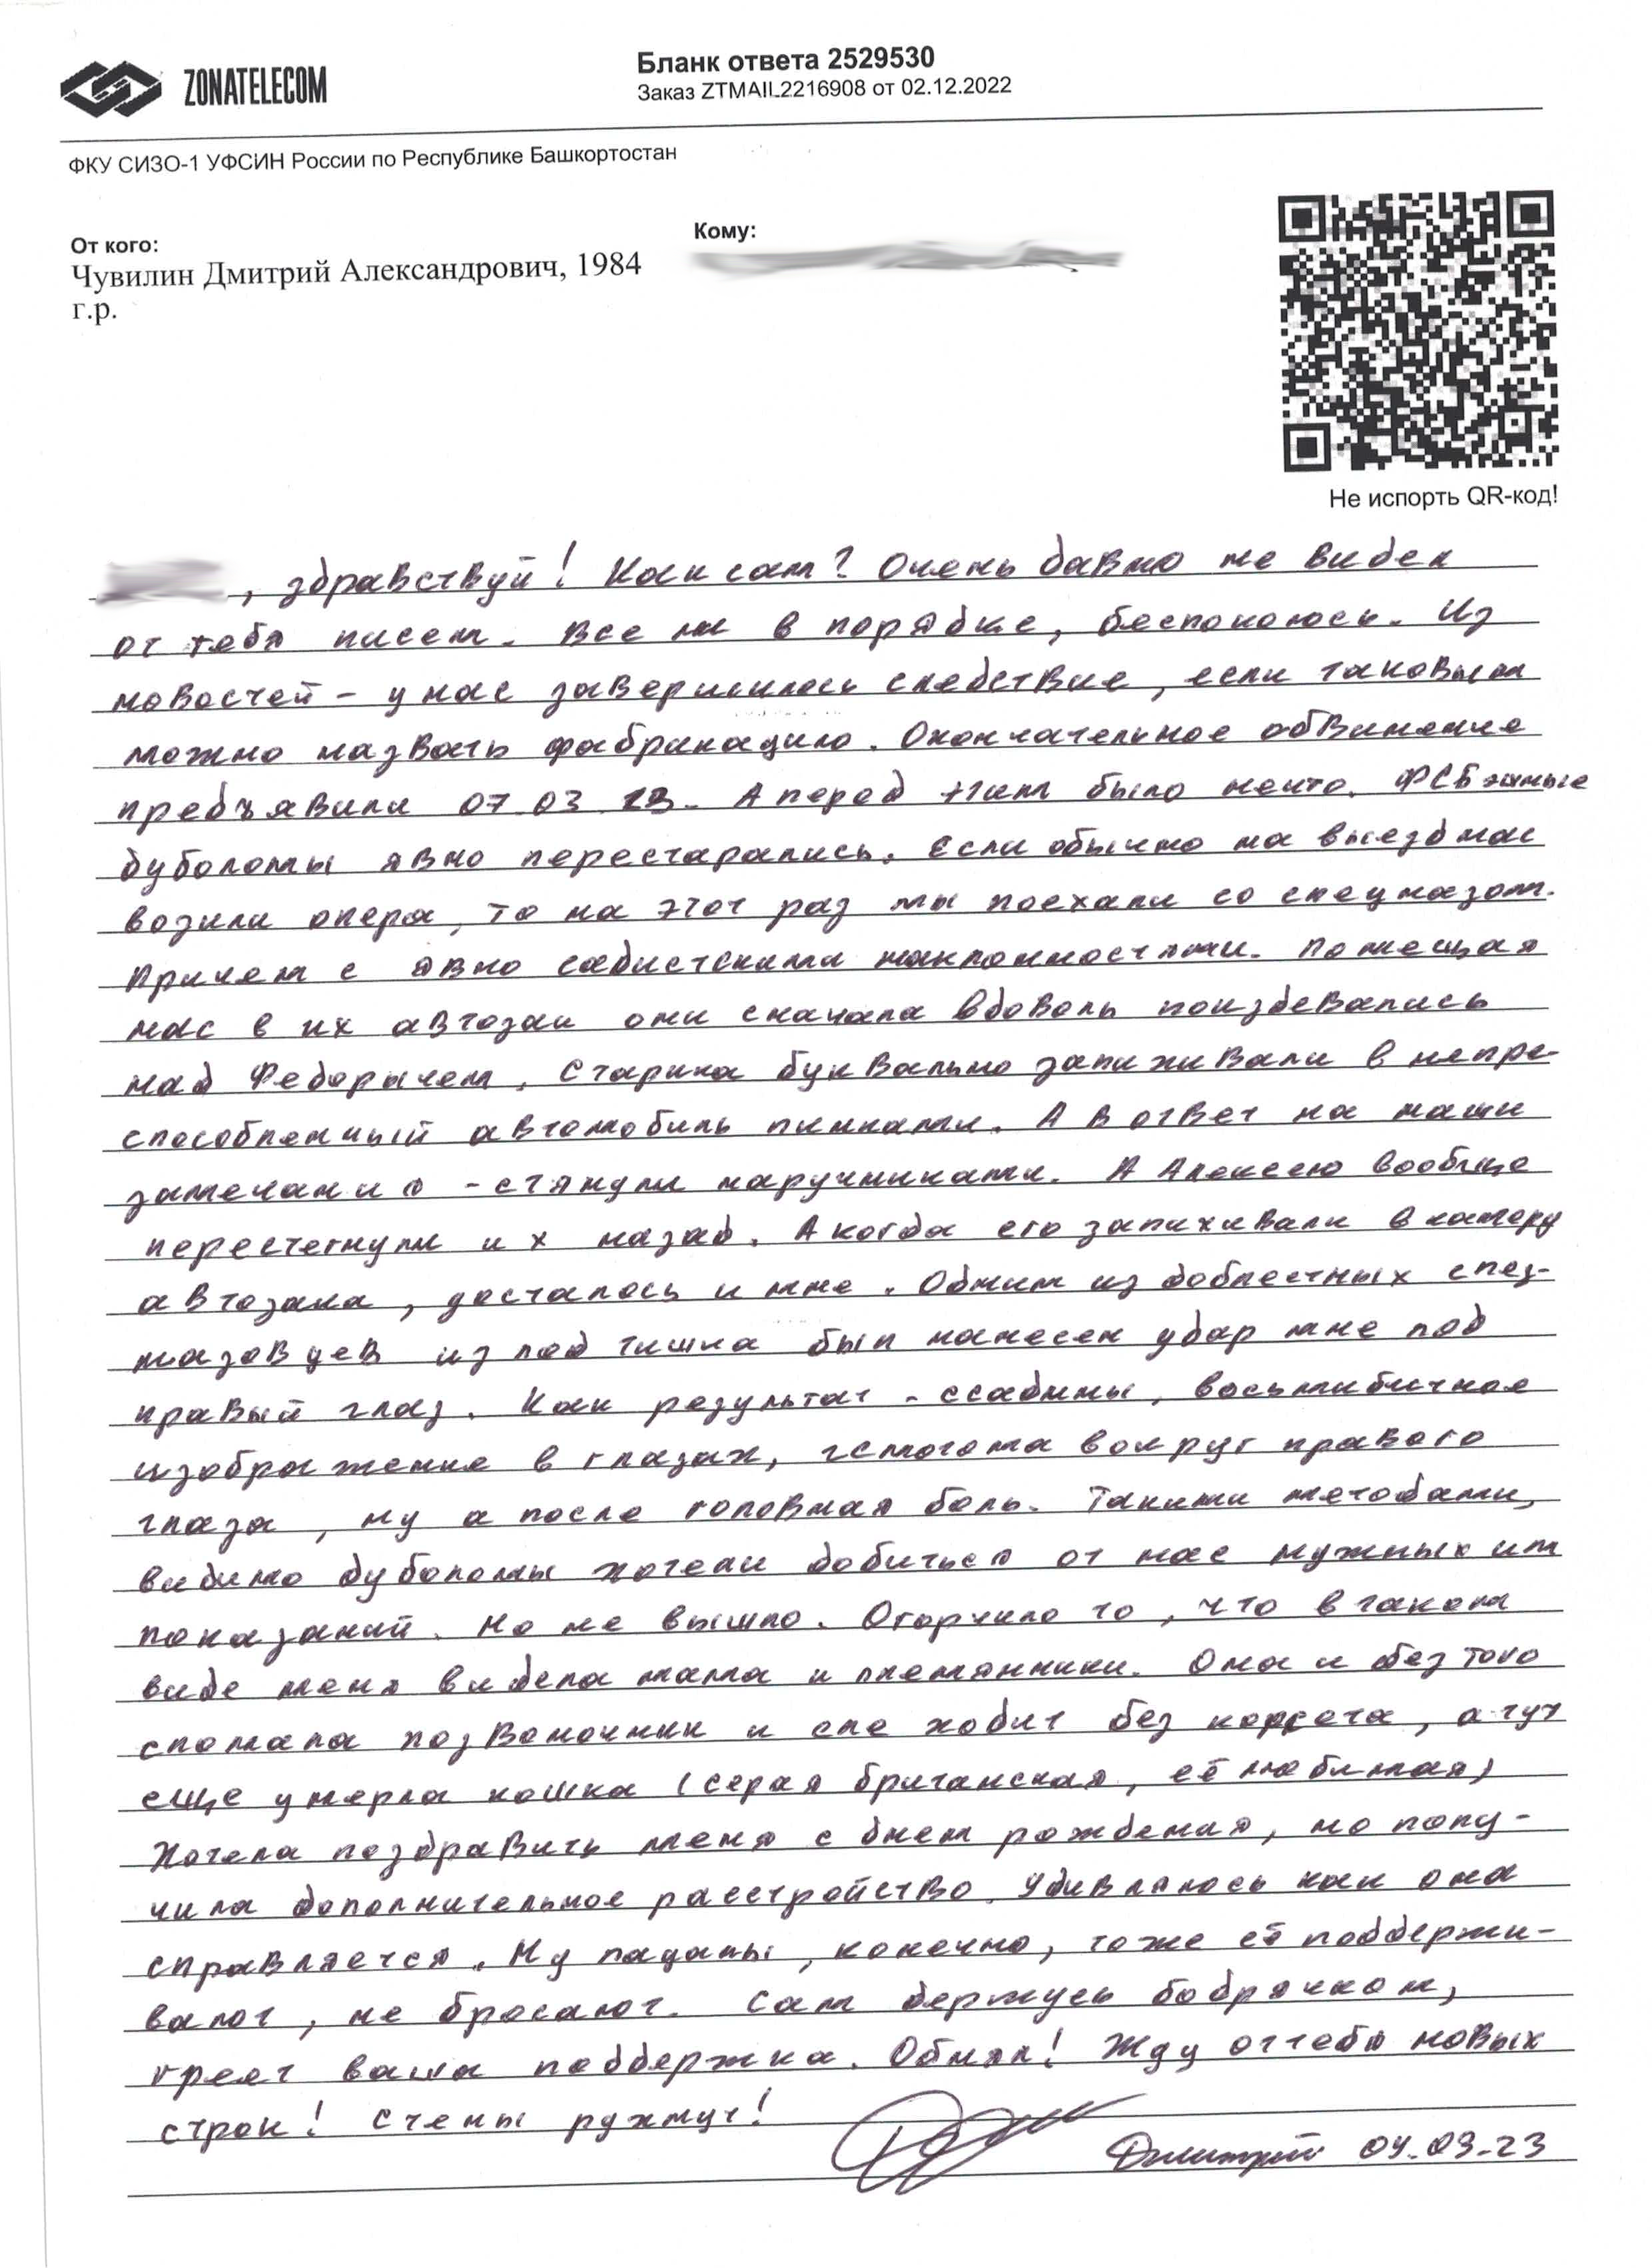 ZONATELECOM
Бланк ответа 2529530
Заказ ZTMAIL2216908 от 02.12.2022
ФКУ СИЗО-1 УФСИН России по Республике Башкортостан
От кого:
Чувилин Дмитрий Александрович, 1984
г.р.
Кому:
Не испорть QR-код!
, здравствуй! Как сам? Очень давно не видел
от тебя писем. Все ли в порядке, беспокоюсь. Из
новостей - у нас завершилось следствие, если таковым
можно назвать фабрикацию. Окончательное обвинение
предъявили 07.03.23. А перед этим было нечто. ФСБэшные
дуболомы явно перестарались. Если обычно на выезд нас
возили опера, то на этот раз мы поехали со спецназом.
Причем с явно садистскими наклонностями. Помещая
нас в их автозак они сначала вдоволь поиздевались
над Федорычем. Старика буквально запихивали в непри-
способленный автомобиль пинками. А в ответ на наши
замечания - стянули наручниками. А Алексею вообще
перестегнули их назад. А когда его запихивали в камеру
автозака, досталось и мне. Одним из доблестных спез-
назовцев из под тишка был нанесен удар мне под
правый глаз. Как результат - ссадины, восьмибитное
изображение в глазах, гематома вокруг правого
глаза, ну а после головная боль. Такими методами,
видимо дуболомы хотели добиться от нас нужных им
показаний. Но не вышло. Огорчило то, что в таком
виде меня видела мама и племянники. Она и без того
сломала позвоночник и еле ходит без корсета, а тут
еще умерла кошка (серая британская, её любимая)
Хотела поздравить меня с днем рождения, но полу-
чила дополнительное расстройство. Удивляюсь как она
справляется. Ну пацаны, конечно, тоже её поддержи-
вают, не бросают. Сам держусь бодрячком,
греет ваша поддержка. Обнял! Жду от тебя новых
строк! Стены рухнут!
Дмитрий 04.03.23